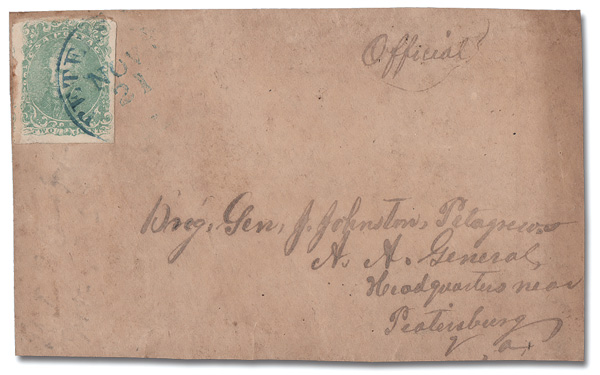 PETE
NOV
21
TWO
Official
Brig. Gen. J. Johnston, Petagrew
A. A. General,
Headquarters near
Peatersburg
Va